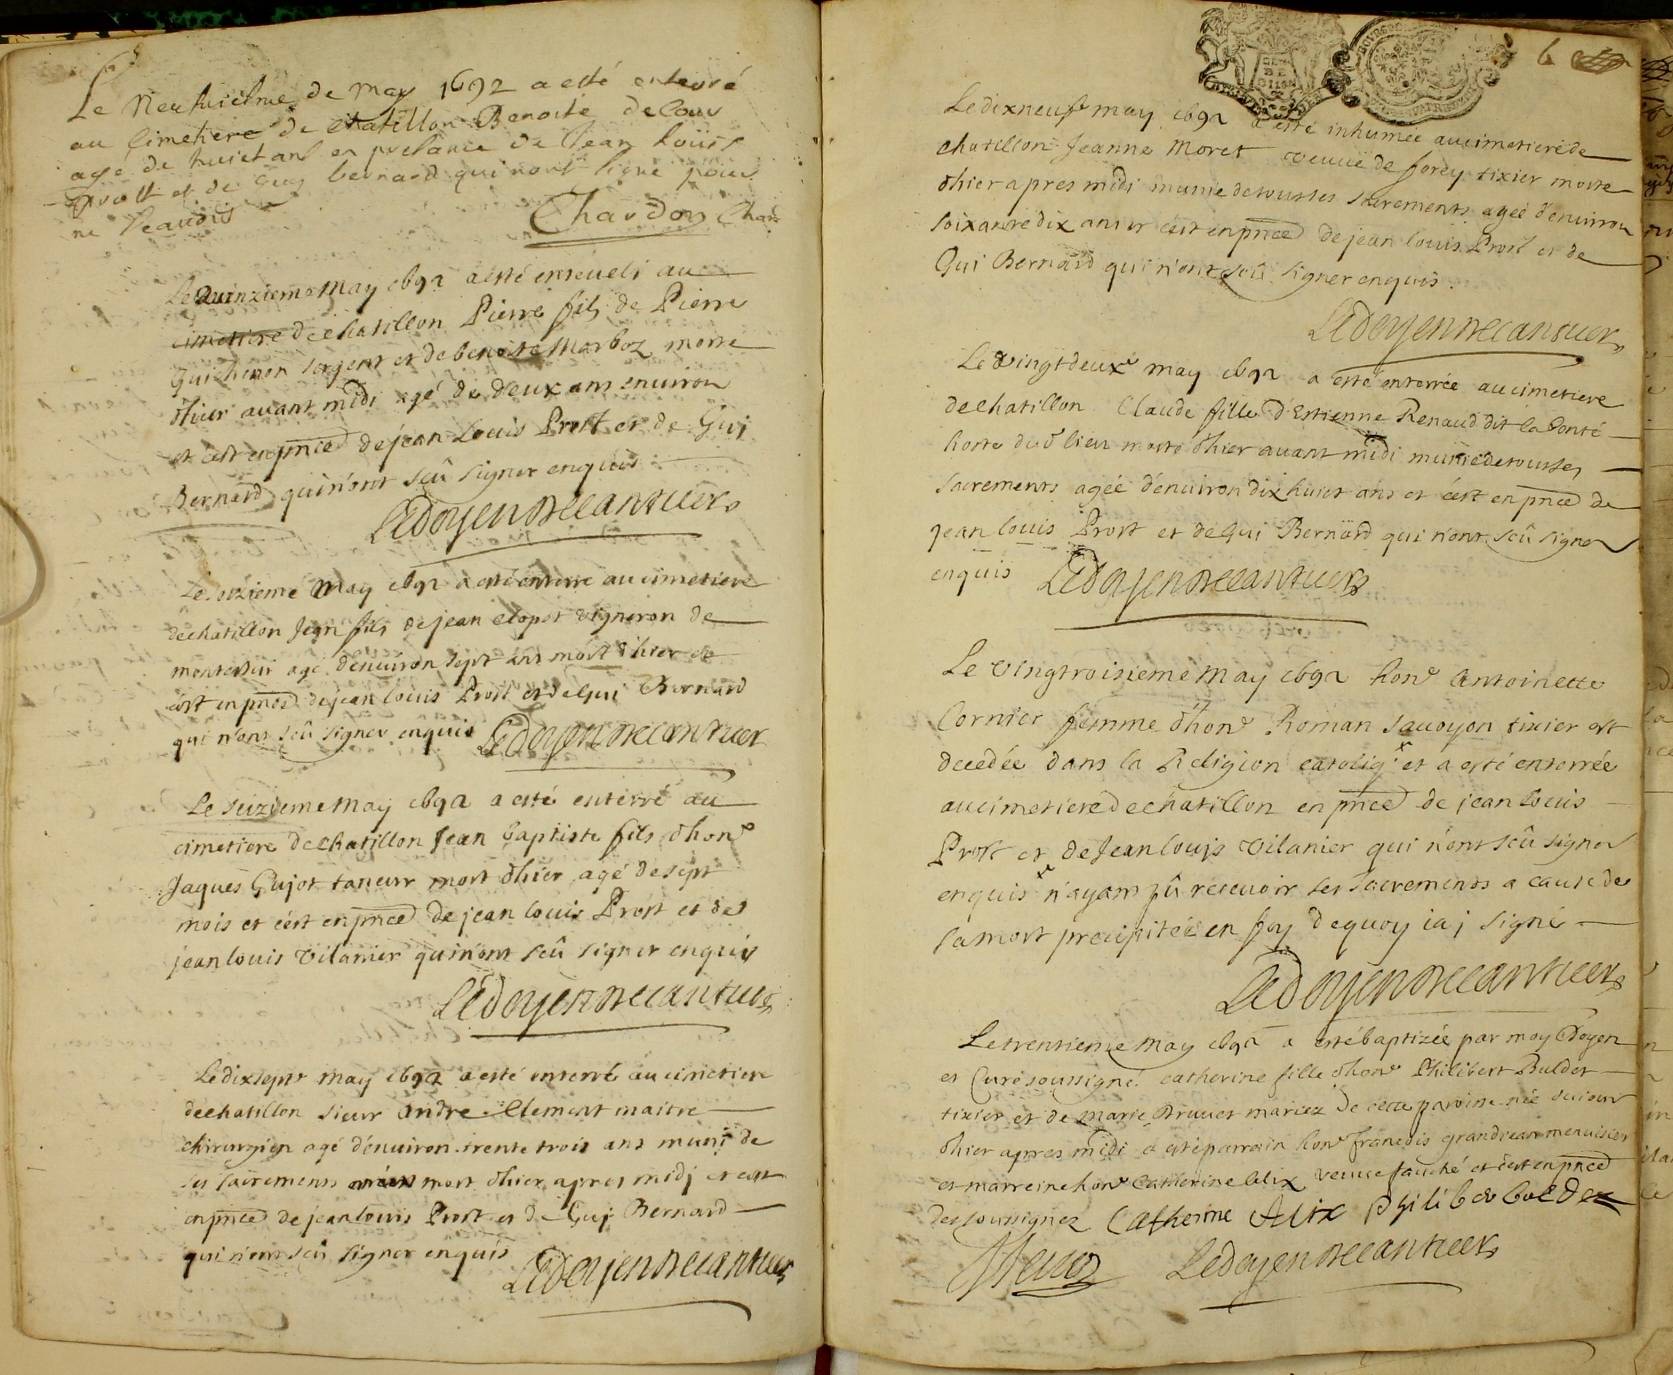 Le Neufvielme de may 1692 a esté enterré
au Cimetiere de chatillon Benoite de Cour
agé de huict ans en presance de Jean Louis
prost et de Guy bernard qui nont signé pour
ne Scauoir Chardon Chan
Le Quinzieme May 1692 a esté enseueli au
cimetiere de chatillon Pierre fils de Pierre
Guichenon sergent et de benoite Marboz morte
d'hier auant midi agé de deux ans enuiron
et c'est en pnce de jean Louis Prost et de Gui
Bernard qui n'ont sçû signer enquis
Le doyen
Le seizieme May 1692 a esté enterré au cimetiere
de chatillon Jean fils de jean clopet vigneron de
agé d'enuiron sept ans mort d'hier et
c'est en pnce de jean louis Prost et de Gui Bernard
qui n'ont sçû signer enquis Le doyen
Le seizieme May 1692 a esté enterré au
cimetiere de chatillon Jean baptiste fils d'hon.e
Jaques Gujot taneur mort d'hier agé de sept
mois et c'est en pnce de jean louis Prost et de
jean louis Vilanier qui n'ont sçû signer enquis
Le doyen
Le dix sept.e May 1692 a esté enterré au cimetiere
de chatillon sieur Andre Clement maitre
chirurgien agé d'enuiron trente trois ans muni de
ses sacrements mort d'hier apres midj et c'est
en pnce de jean louis Prost et de Gui Bernard
qui n'ont sçû signer enquis Le doyen
6
Le dixneuf.e may 1692 a esté inhumée au cimetiere de
chatillon Jeanne Moret veuue de forey tixier morte
d'hier apres midi munie de tous ses sacrements agée d'enuiron
soixante dix ans et c'est en pnce de jean louis Prost et de
Gui Bernard qui n'ont sçû signer enquis.
Le doyen
Le vingt deux.e may 1692 a esté enterrée au cimetiere
de chatillon Claude fille d'Estienne Renaud dit la bonté
hoste du d lieu morte d'hier auant midi munie de tous ses
sacrements agée d'enuiron dix huict ans et c'est en pnce de
jean louis Prost et de Gui Bernard qui n'ont sçû signer
enquis Le doyen
Le vingtroisieme May 1692 hon.e Antoinette
Cornier femme d'hon.e Roman sauoyon tixier est
decedée dans la Religion catoliq. x et a esté enterrée
au cimetiere de chatillon en pnce de jean louis
Prost et de Jean louis Vilanier qui n'ont sçû signer
enquis x n'ayant pû receuoir ses sacrements a cause de
sa mort precipitée en foy de quoy iaj signé
Le doyen
Le trentieme May 1692 a esté baptizée par moy Doyen
et Curé soussigné catherine fille d'hon.e Philibert Buldet
tixier et de marie Bruuet mariez de cette paroisse née
d'hier apres midi a esté parrain hon.e francois grandjean menuisier
et marreine hon.e Catherine Alix veuue fauché et c'est en pnce
des soussignez Catherine Alix philiber buldet
Le doyen